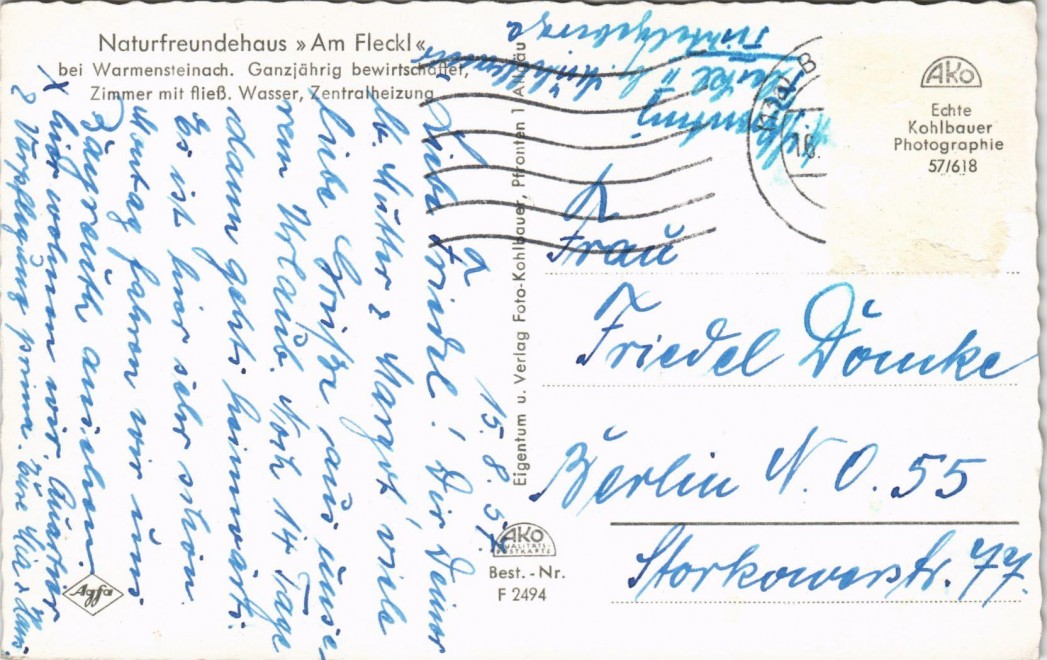 Naturfreundehaus »Am Fleckl«
bei Warmensteinach. Ganzjährig bewirtschaftet,
Zimmer mit fließ. Wasser, Zentralheizung
AKO
Echte
Kohlbauer
Photographie
57/618
Eigentum u. Verlag Foto-Kohlbauer, Pfronten 1 Allgäu
AKO
QUALITÄTS-
POSTKARTE
Best.-Nr.
F 2494
Agfa
15. 8. 57.
Liebe Friedel! Dir Deiner
lb. Mutter & Margot viele
liebe Grüße aus unse-
rem Urlaub. Noch 14 Tage
dann geht's heimwärts.
Es ist hier sehr schön.
Montag fahren wir uns
Bayreuth ansehen.
X hier wohnen wir. Quartier
& Verpflegung prima.
Frau
Friedel Dömke
Berlin N. O. 55
Storkowerstr. 77.
Fichtelgebirge